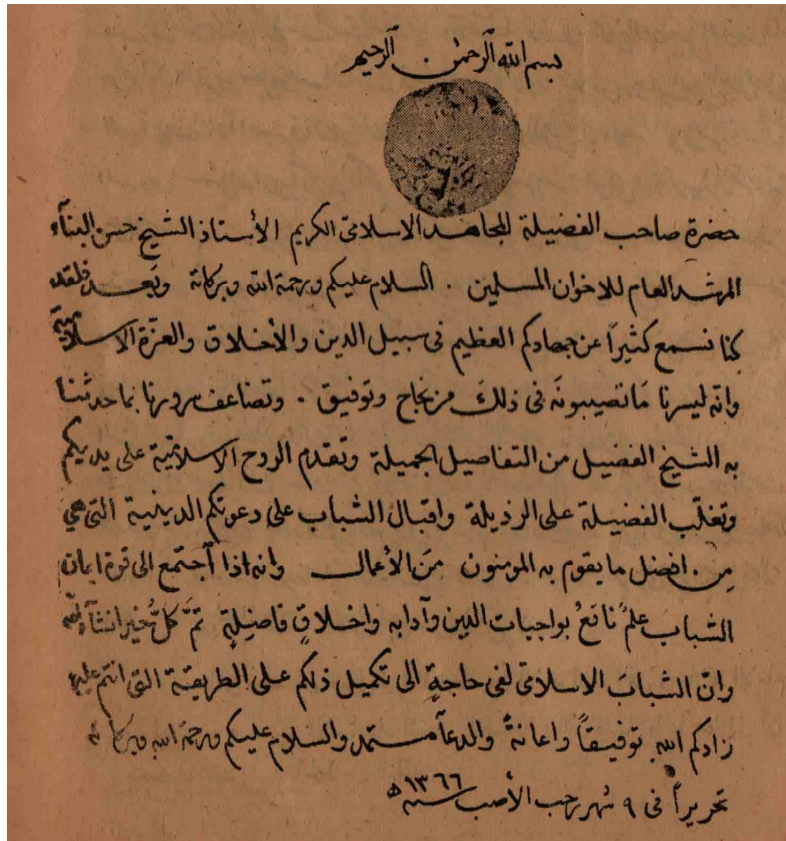 بسم الله الرحمن الرحيم
حضرة صاحب الفضيلة المجاهد الاسلامى الكريم الأستاذ الشيخ حسن البنآء
المرشد العام للاخوان المسلمين . السلام عليكم ورحمة الله وبركاته وبعد فلقد
كنا نسمع كثيراً عن جهادكم العظيم فى سبيل الدين والأخلاق والعزة الاسلامية
وانه ليسرنا مَا تصيبونَه فى ذلكَ من نجاح وتوفيق . وتضاعف سرورنا بما حدثنا
به الشيخ الفضيل من التفاصيل الجميلة وتقدم الروح الاسلامية على يديكم
وتغلّب الفضيلة على الرذيلة واقبال الشباب على دعوتكم الدينية التى هي
مِن افضل ما يقوم به المومنون مَن الأعمال وانه اذا آجتمع الى قوة ايمان
الشباب علمٌ نافعٌ بواجبات الدين وآدابه واخلاقٍ فاضلةٍ تمَّ كلُّ خير انشآء الله
وانّ الشبابَ الاسلامى لفى حاجةٍ الى تكميل ذلكم على الطريقة التى انتم عليها
زادكم الله توفيقاً واعانةً والدعآ مستمد والسلام عليكم ورحمة الله وبركاته
تحريراً فى ٩ شهر رجب الأصب سنة ١٣٦٦ ه